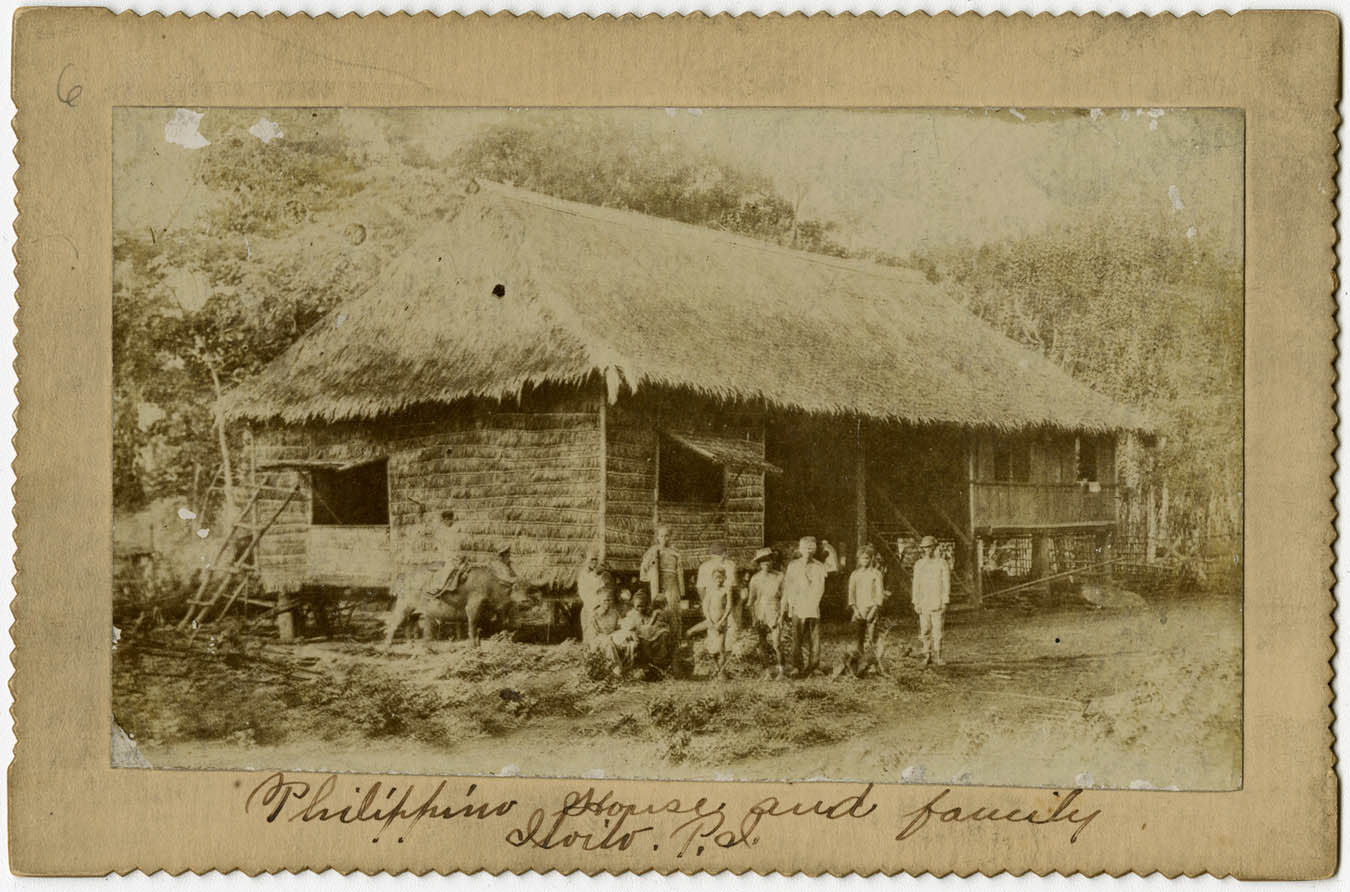 6
Philippino House and family
Iloilo. P.I.